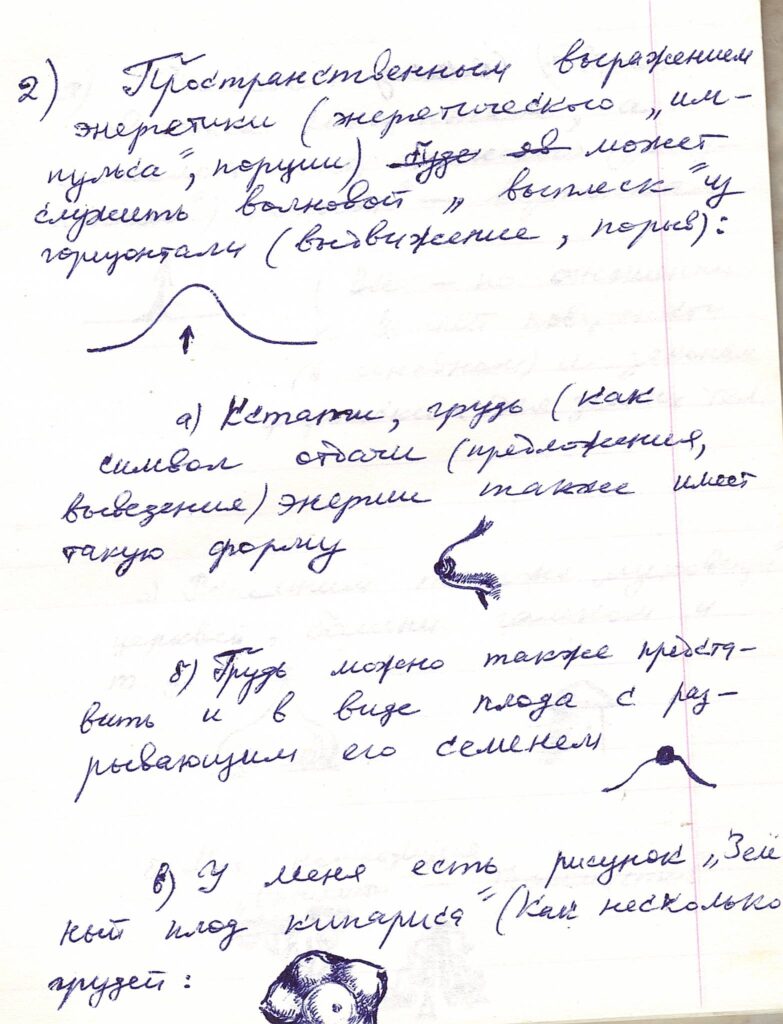 2) Пространственным выражением
энергетики (энергетического „им-
пульса", порции) буде яв может
служить волновой „выплеск" у
горизонтали (выдвижение, порыв):
а) Кстати, грудь (как
символ отдачи (предложения,
выведения) энергии также имеет
такую форму
б) Грудь можно также предста-
вить и в виде плода с раз-
рывающим его семенем
в) У меня есть рисунок „Зелё
ный плод кипариса" (как несколько
грудей: